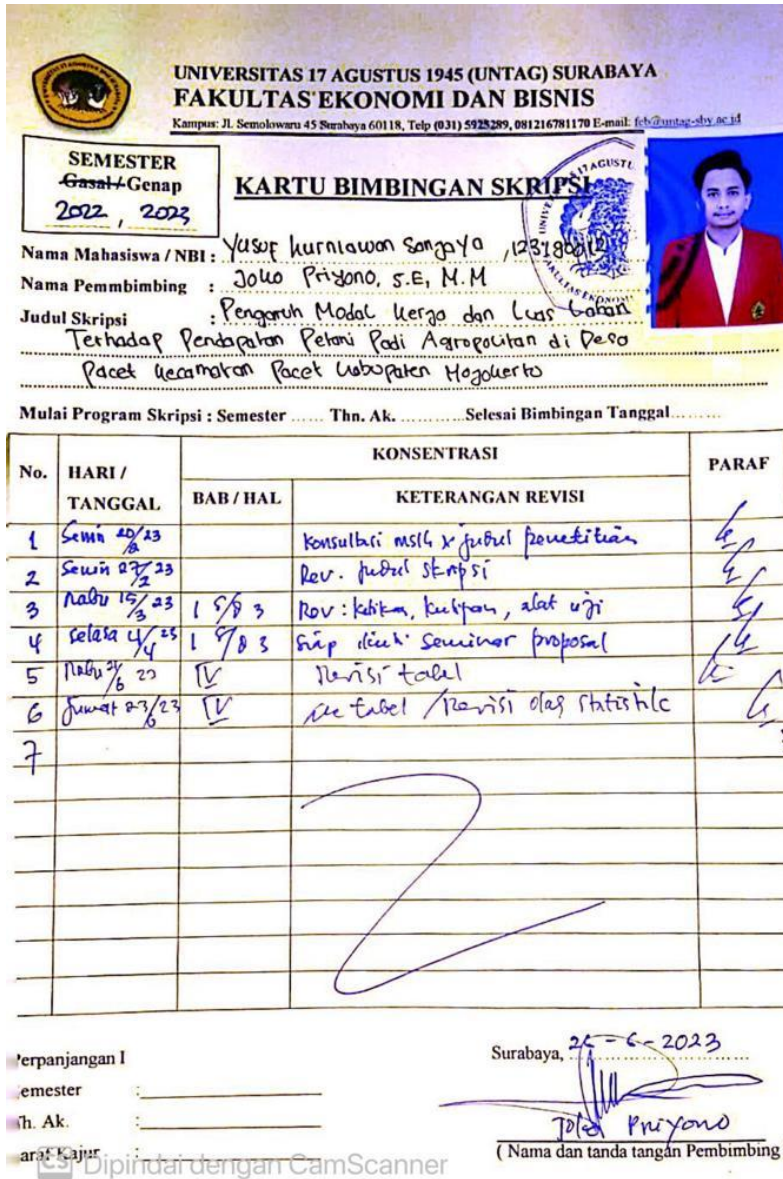 UNIVERSITAS 17 AGUSTUS 1945 (UNTAG) SURABAYA
FAKULTAS EKONOMI DAN BISNIS
Kampus: Jl. Semolowaru 45 Surabaya 60118, Telp (031) 5925289, 081216781170 E-mail: feb@untag-sby.ac.id
SEMESTER
Gasal / Genap
2022 , 2023
KARTU BIMBINGAN SKRIPSI
Nama Mahasiswa / NBI : Yusuf Kurniawan Sanjaya ,
Nama Pemmbimbing : Joko Priyono, S.E, M.M
Judul Skripsi : Pengaruh Modal Kerja dan Luas Lahan
Terhadap Pendapatan Petani Padi Agropolitan di Desa
Pacet Kecamatan Pacet Kabupaten Mojokerto
Mulai Program Skripsi : Semester ...... Thn. Ak. ............Selesai Bimbingan Tanggal.........
No. HARI / TANGGAL KONSENTRASI PARAF
BAB / HAL KETERANGAN REVISI
1 Senin 20/2 23 Konsultasi judul penelitian
2 Senin 27/2 23 Rev. judul skripsi
3 Rabu 15/3 23 1 S/D 3 Rev : kutipan, alat uji
4 Selasa 4/4 23 1 S/D 3 Siap seminar proposal
5 Rabu 23 IV Revisi tabel
6 Jumat 23/6 23 IV tabel / Revisi olah statistik
7
Surabaya, 26 - 6 - 2023
Perpanjangan I
Semester :
Th. Ak. :
Paraf Kajur :
Joko Priyono
( Nama dan tanda tangan Pembimbing
CS Dipindai dengan CamScanner